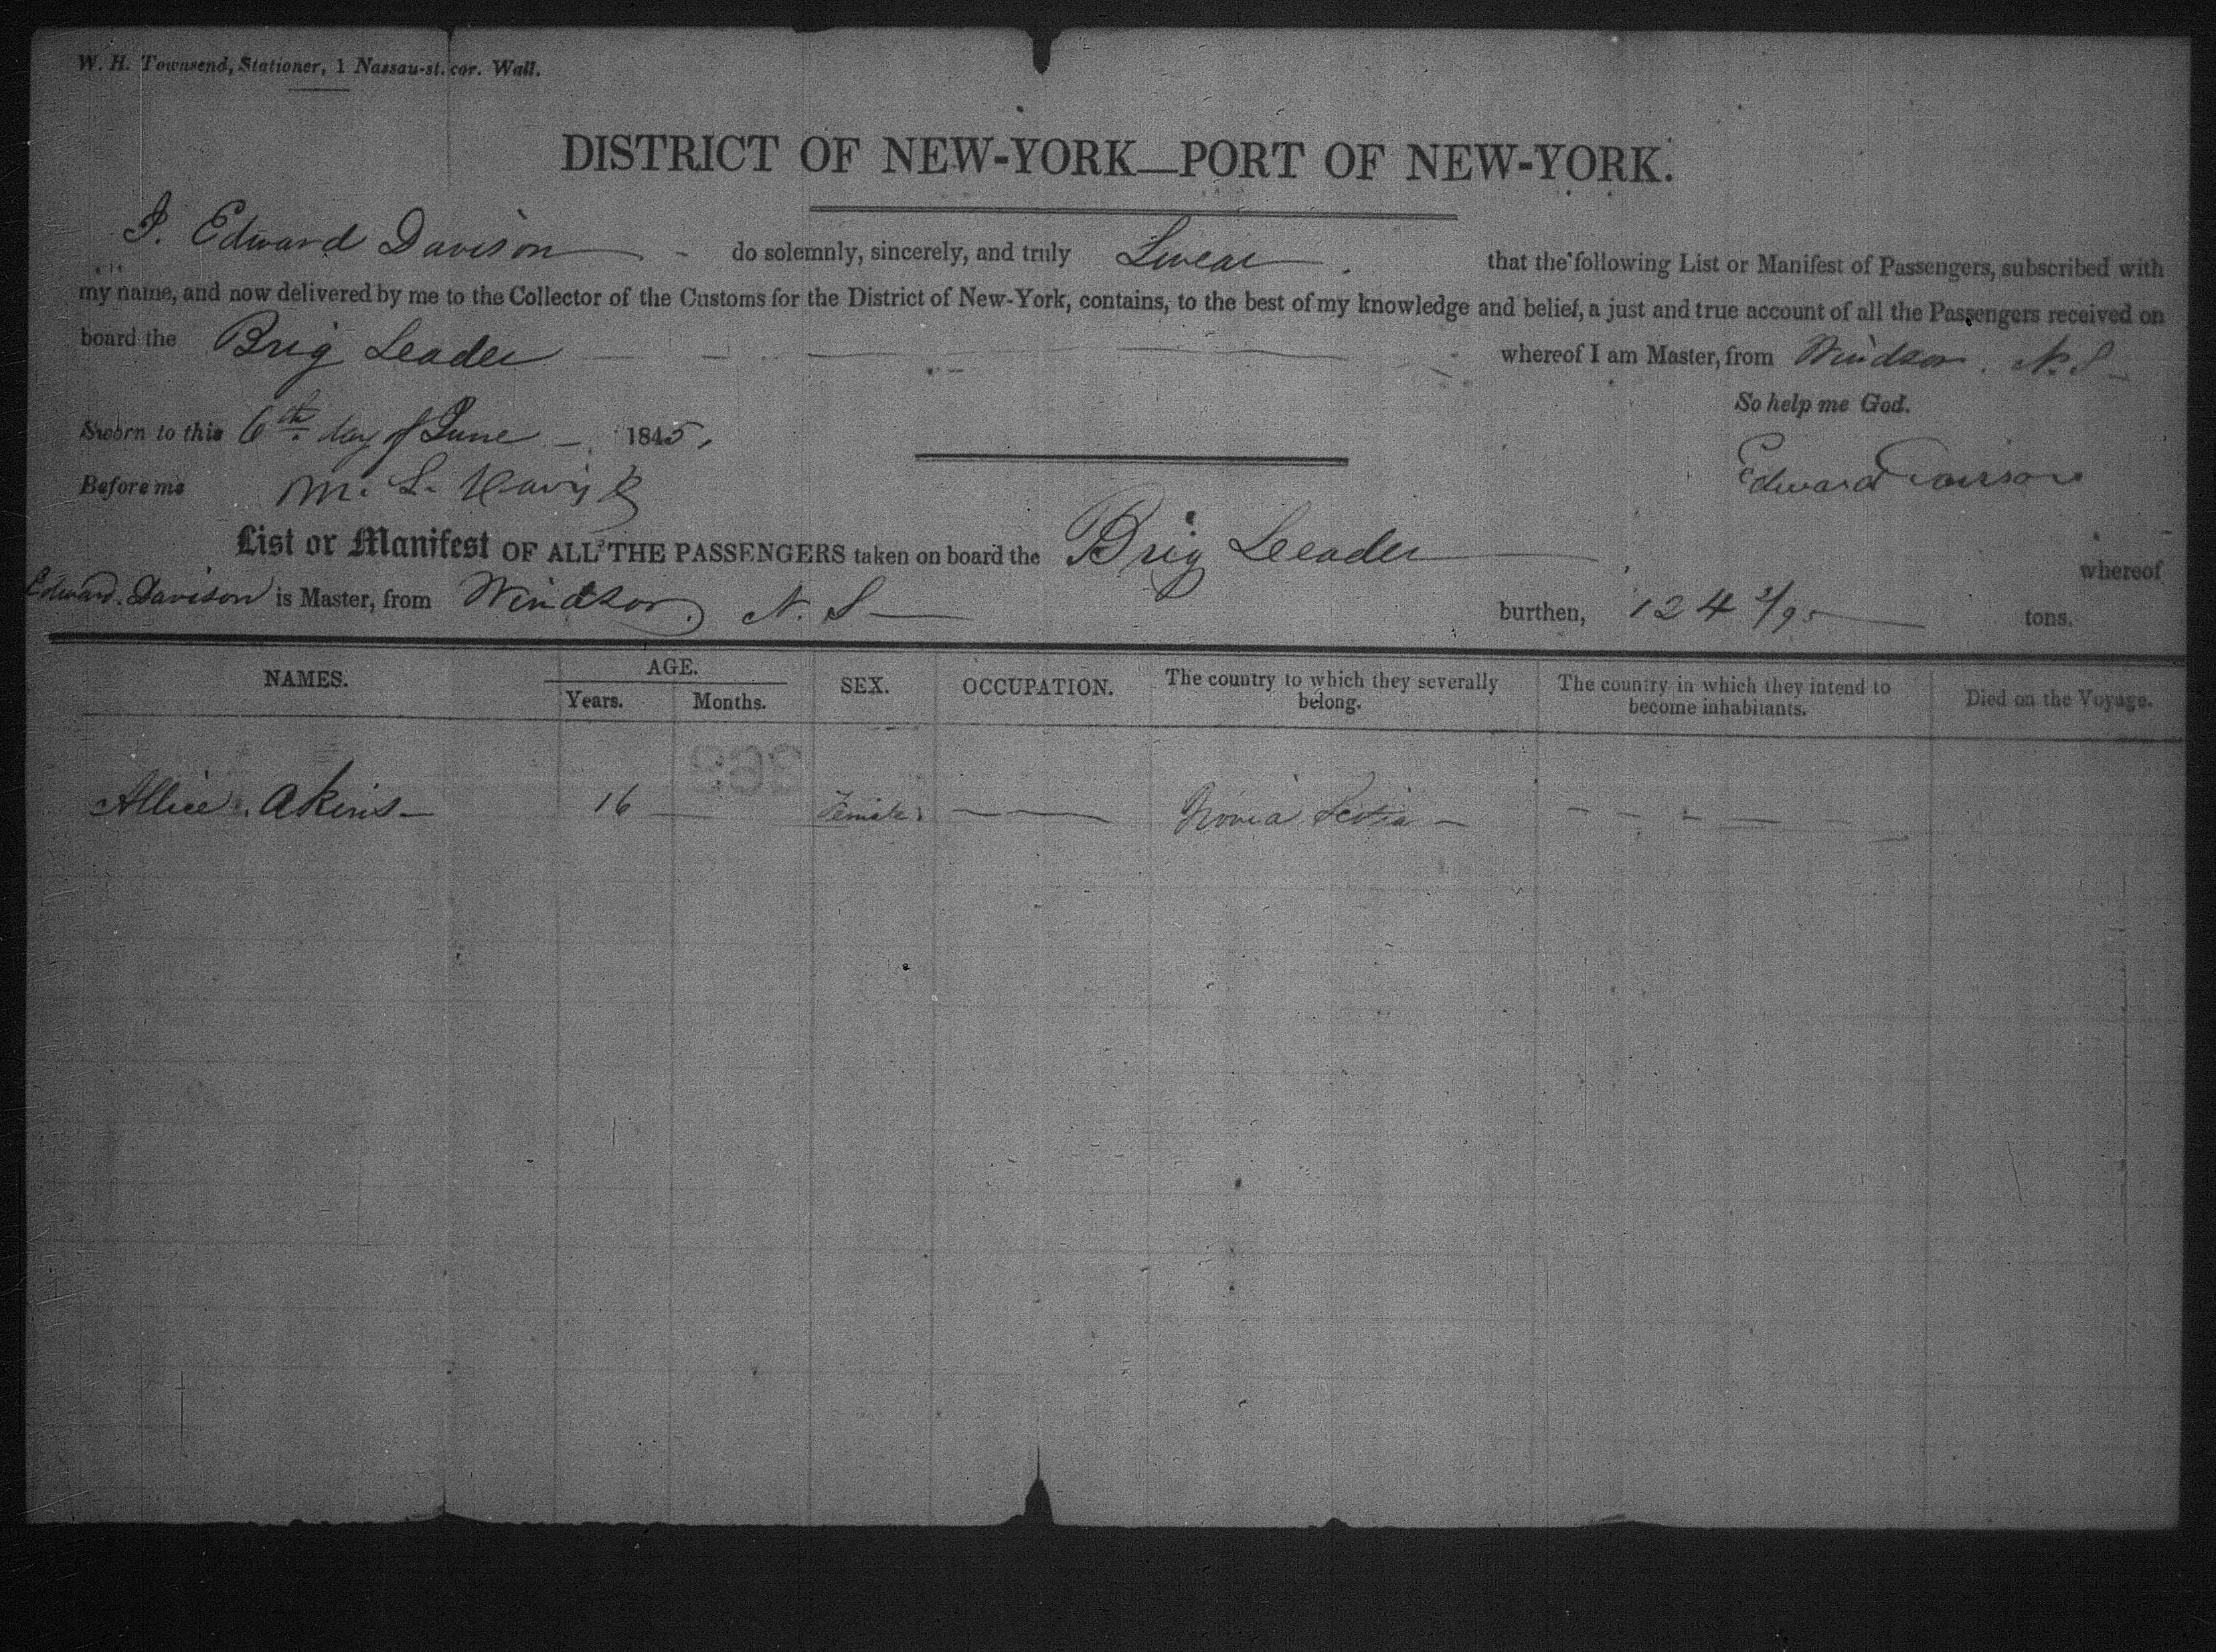 W. H. Townsend, Stationer, 1 Nassau-st. cor. Wall.
DISTRICT OF NEW-YORK—PORT OF NEW-YORK.
I. Edward Davison do solemnly, sincerely, and truly Swear that the following List or Manifest of Passengers, subscribed with
my name, and now delivered by me to the Collector of the Customs for the District of New-York, contains, to the best of my knowledge and belief, a just and true account of all the Passengers received on
board the Brig Leader whereof I am Master, from Windsor. N. S
So help me God.
Sworn to this 6th day of June 1845.
Edward Davison
Before me M. L. Davis
List or Manifest OF ALL THE PASSENGERS taken on board the Brig Leader whereof
Edward Davison is Master, from Windsor. N. S burthen, 124 2/95 tons.
NAMES. AGE. SEX. OCCUPATION. The country to which they severally belong. The country in which they intend to become inhabitants. Died on the Voyage.
Years. Months.
Allice Akins 16 Female Novia Scotia